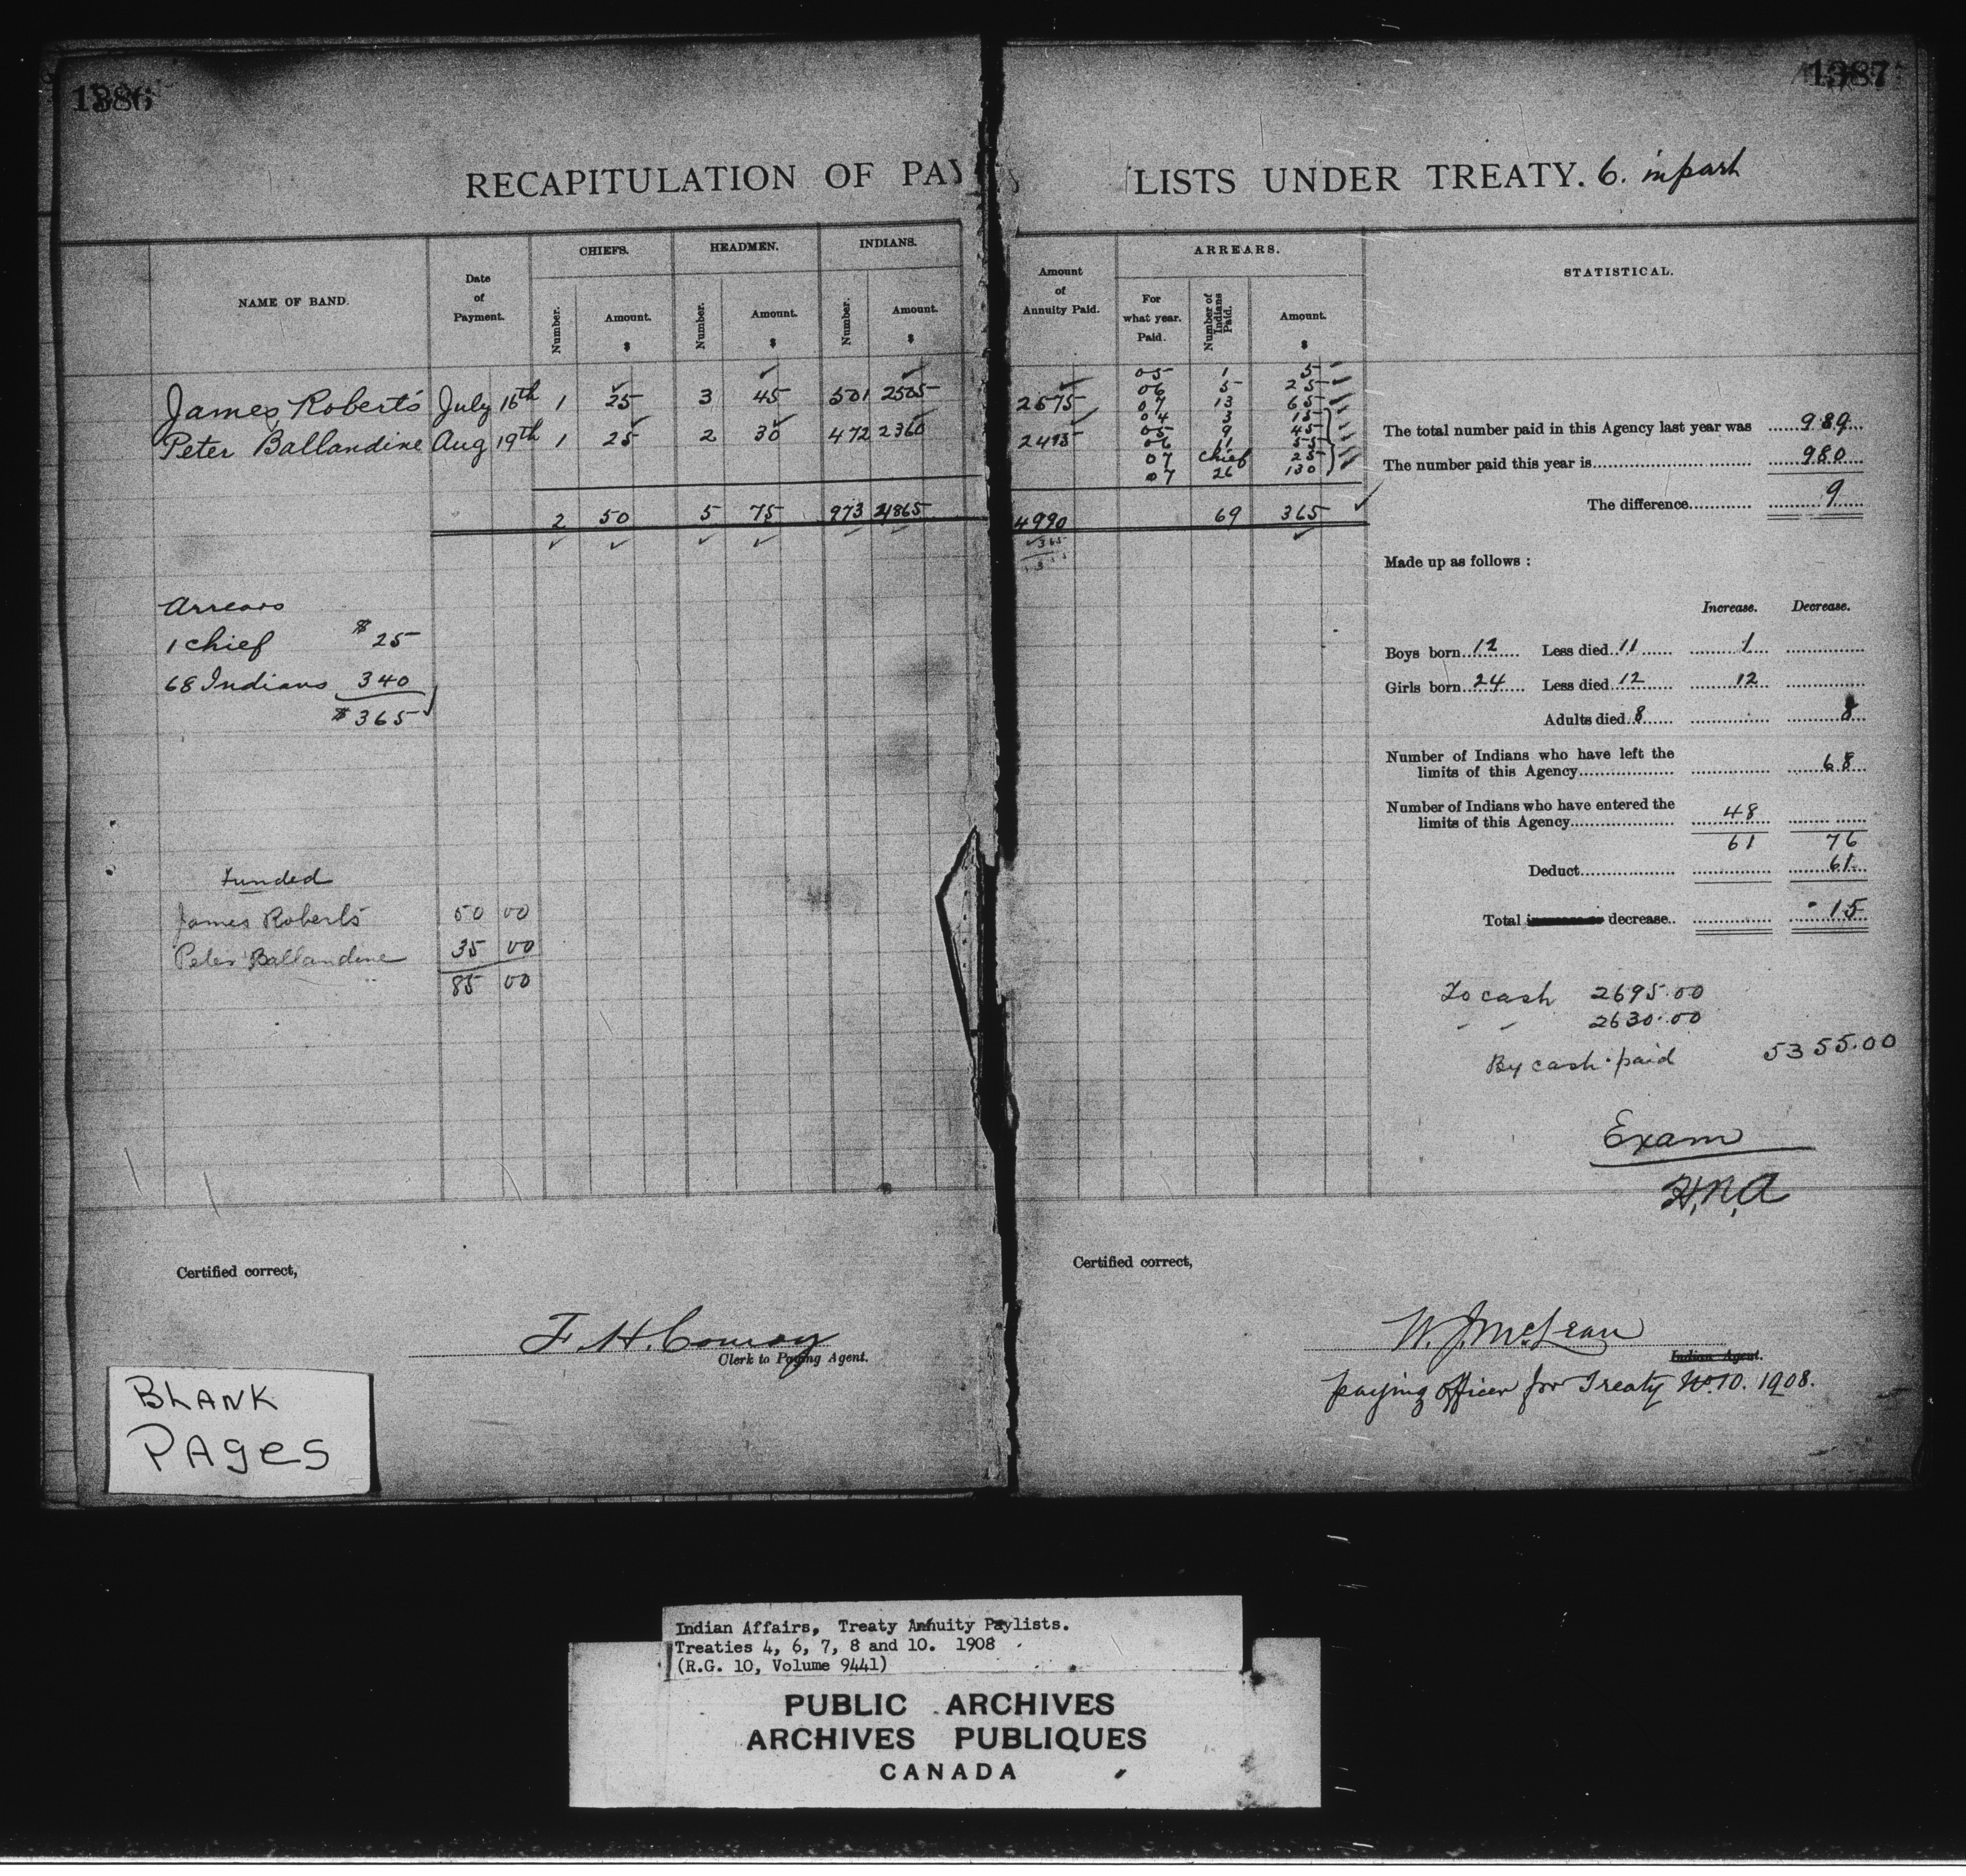 1386
1387
RECAPITULATION OF PAY LISTS UNDER TREATY. 6. in part
NAME OF BAND.
Date of Payment.
CHIEFS.
HEADMEN.
INDIANS.
Number.
Amount. $
Number.
Amount. $
Number.
Amount. $
Amount of Annuity Paid.
ARREARS.
For what year. Paid.
Number of Indians Paid.
Amount. $
STATISTICAL.
James Roberts July 16th 1 25 3 45 501 2505 2575
05 1 5
06 5 25
07 13 65
Peter Ballandine Aug 19th 1 25 2 30 472 2360 2415
04 3 15
05 9 45
06 11 55
07 Chief 25
07 26 130
2 50 5 75 973 4865 4990 69 365
365
Arrears
1 Chief $25
68 Indians 340
$365
Funded
James Roberts 50 00
Peter Ballandine 35 00
85 00
The total number paid in this Agency last year was 989
The number paid this year is 980
The difference 9
Made up as follows :
Increase. Decrease.
Boys born 12 Less died 11 1
Girls born 24 Less died 12 12
Adults died 8 8
Number of Indians who have left the
limits of this Agency 68
Number of Indians who have entered the
limits of this Agency 48
61 76
Deduct 61
Total increase or decrease 15
To cash 2695.00
" " 2630.00
By cash paid 5355.00
Exam
H.N.A
Certified correct,
F. H. Conroy
Clerk to Paying Agent.
Certified correct,
W. J. McLean
Indian Agent.
paying officer for Treaty No 10. 1908.
BLANK
PAges
Indian Affairs, Treaty Annuity Paylists.
Treaties 4, 6, 7, 8 and 10. 1908
(R.G. 10, Volume 9441)
PUBLIC ARCHIVES
ARCHIVES PUBLIQUES
CANADA